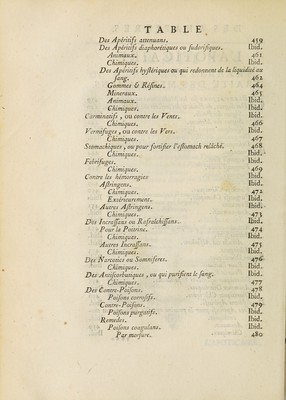 TABLE
Des Apéritifs attenuans. 459
Des Apéritifs diaphorétiques ou sudorifiques. Ibid.
Animaux. 461
Chimiques. Ibid.
Des Apéritifs hystériques ou qui redonnent de la liquidité au
sang. 462
Gommes & Résines. 464
Mineraux. 465
Animaux. Ibid.
Chimiques. Ibid.
Carminatifs, ou contre les Vents. Ibid.
Chimiques. 466
Vermifuges, ou contre les Vers. Ibid.
Chimiques. 467
Stomachiques, ou pour fortifier l'estomach relâché. 468
Chimiques. Ibid.
Febrifuges. Ibid.
Chimiques. 469
Contre les hémorragies Ibid.
Astringens. Ibid.
Chimiques. 472
Exterieurement. Ibid.
Autres Astringens. Ibid.
Chimiques. 473
Des Incrassans ou Rafraîchissans. Ibid.
Pour la Poitrine. 474
Chimiques. Ibid.
Autres Incrassans. 475
Chimiques. Ibid.
Des Narcotics ou Somniferes. 476
Chimiques. Ibid.
Des Antiscorbutiques, ou qui purifient le sang. Ibid.
Chimiques. 477
Des Contre-Poisons. 478
Poisons corrosifs. Ibid.
Contre-Poisons. 479
Poisons purgatifs. Ibid.
Remedes. Ibid.
Poisons coagulans. Ibid.
Par morsure. 480